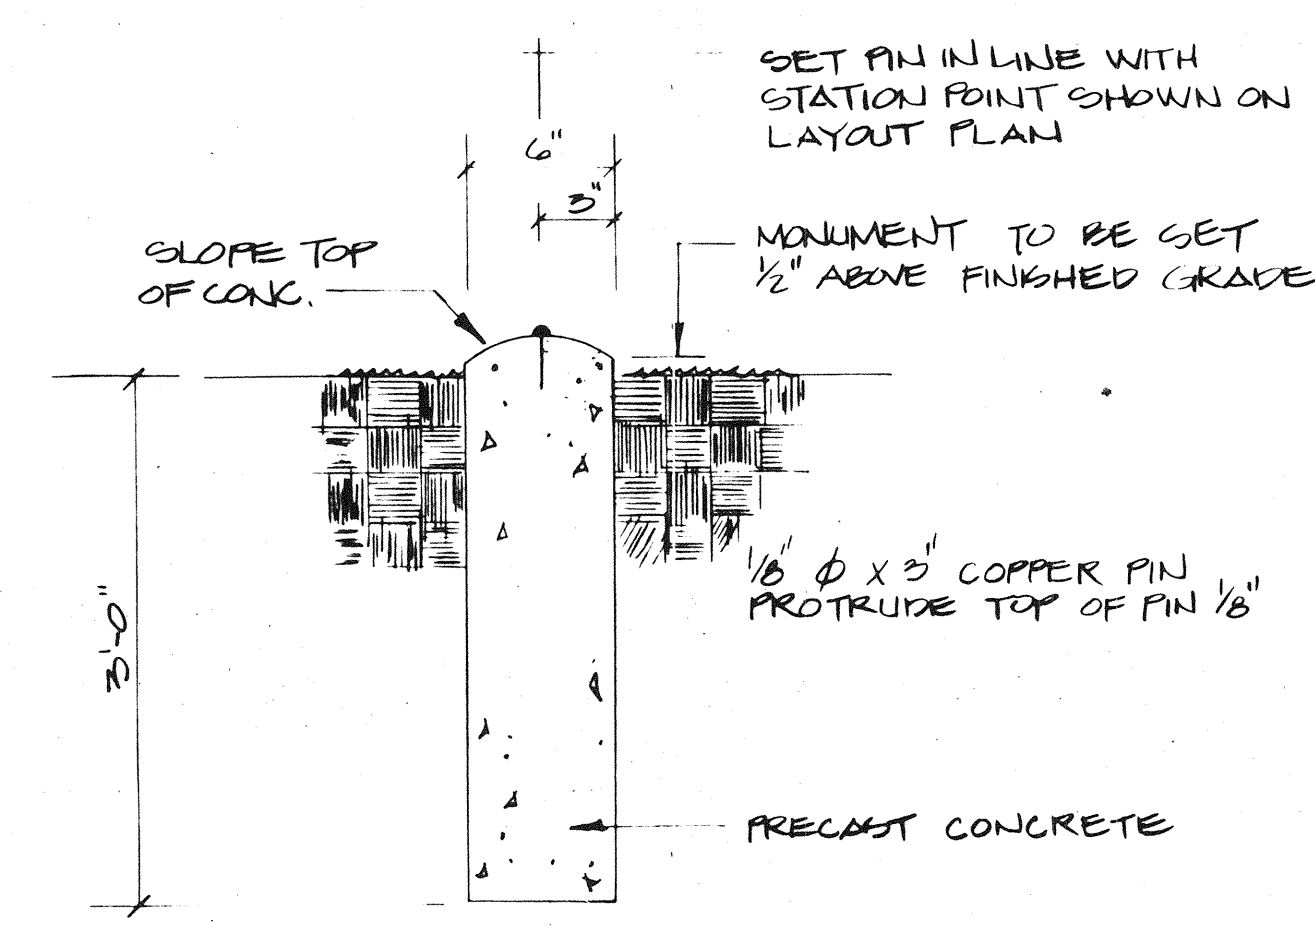 SET PIN IN LINE WITH
STATION POINT SHOWN ON
LAYOUT PLAN
6"
3"
SLOPE TOP
OF CONC.
MONUMENT TO BE SET
1/2" ABOVE FINISHED GRADE
1/8" Ø X 3" COPPER PIN
PROTRUDE TOP OF PIN 1/8"
3'-0"
PRECAST CONCRETE